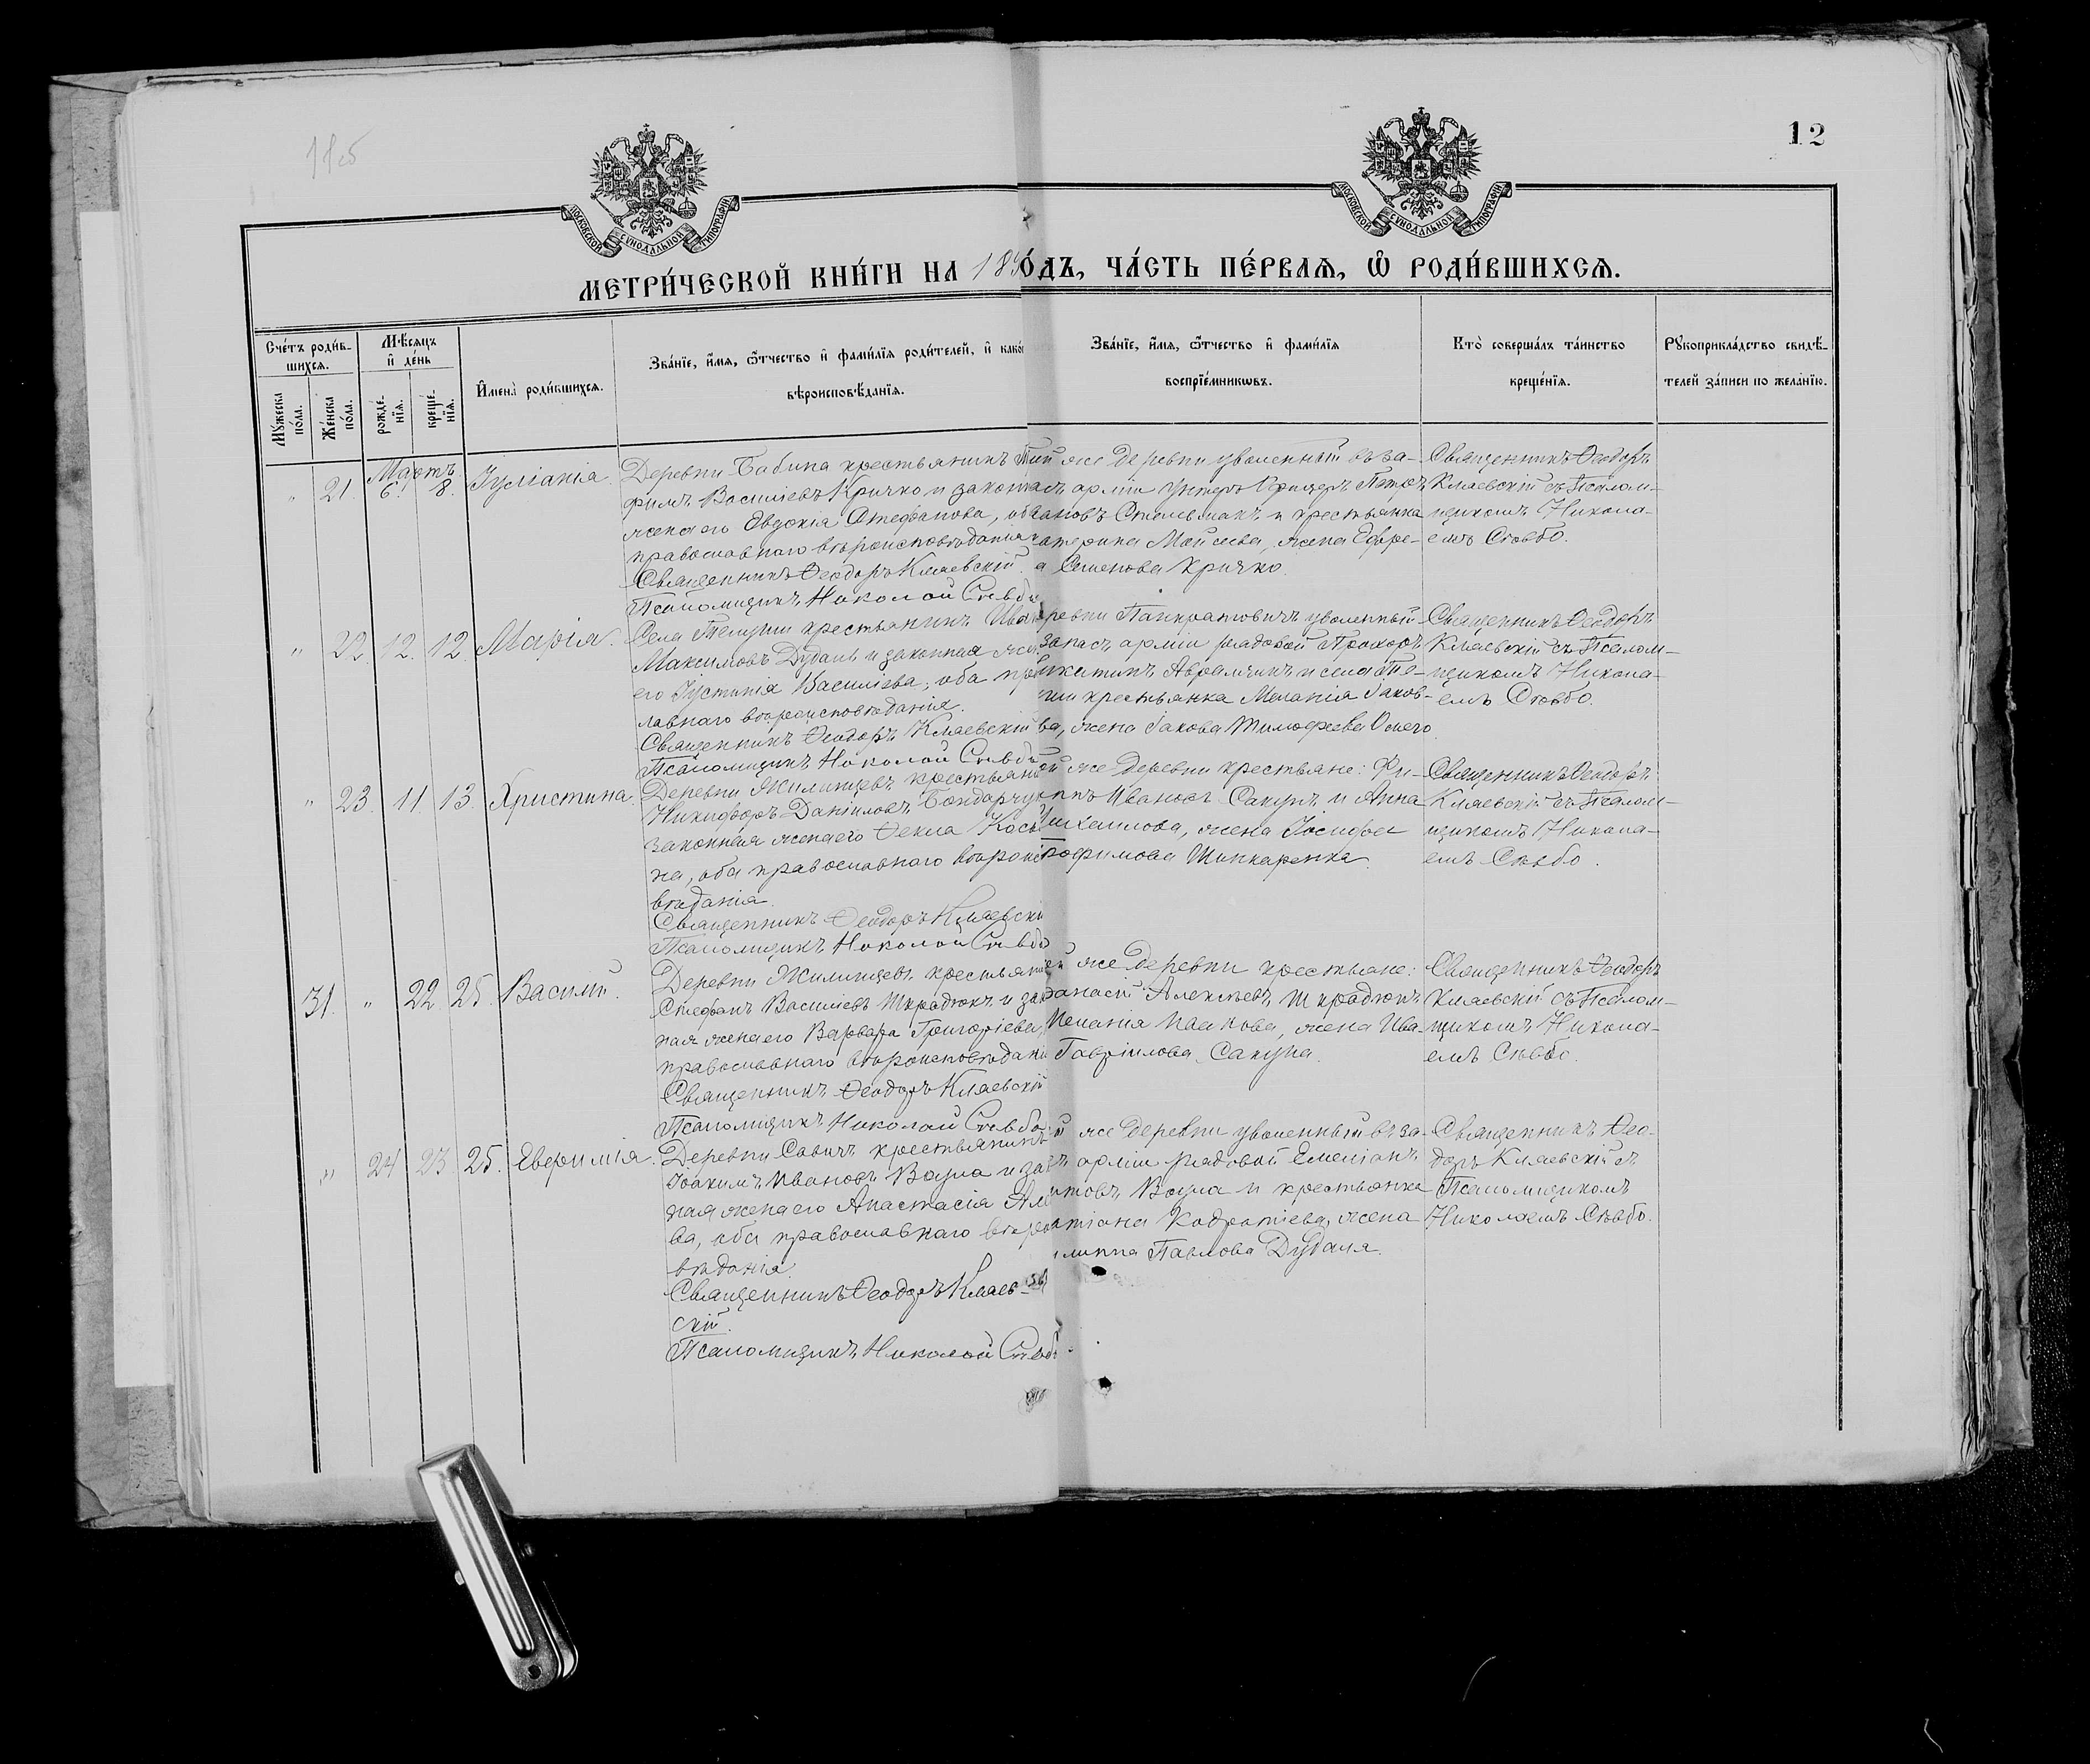 11об
12
МОСКОВСКОЙ СѴНОДАЛЬНОЙ ТИПОГРАФІИ
МОСКОВСКОЙ СѴНОДАЛЬНОЙ ТИПОГРАФІИ
МЕТРИ́ЧЕСКОЙ КНИ́ГИ НА 189
О́ДЪ, ЧА́СТЬ ПЕ́РВАѦ, Ѡ҆ РОДИ́ВШИХСѦ.
Сче́тъ роди́в-
шихсѧ.
Мꙋ́жеска по́ла.
Же́нска по́ла.
Мѣ́сѧцъ и҆ де́нь
рожде́-
нїѧ.
креще́-
нїѧ.
И҆мена̀ роди́вшихсѧ.
Зва́нїе, и҆́мѧ, ѻ҆́тчество и҆ фами́лїѧ роди́телей, и҆ како́
вѣроисповѣ́данїѧ.
Зва́нїе, и҆́мѧ, ѻ҆́тчество и҆ фами́лїѧ
воспрїе́мникѡвъ.
Кто̀ соверша́лъ та́инство
креще́нїѧ.
Рꙋкоприкла́дство свидѣ́-
телей за́писи по жела́нїю.
Мартъ
" 21. 6. 8. Іуліанія.
Деревни Бабина крестьянинъ Т
фимъ Василіевъ Кричко и законная
жена его Евдокія Стефанова, оба
православнаго вѣроисповѣданія
Священникъ Ѳеодоръ Кляевскій.
Псаломщикъ Николай Сѣвбо
же деревни уволенный въ за-
пасъ арміи унтеръ офицеръ Петръ
ановъ Стельмахъ и крестьянка
атерина Моисеева, жена Ефре-
а Семенова Кричко.
Священникъ Ѳеодоръ
Кляевскій съ Псалом-
щикомъ Никола-
емъ Сѣвбо.
" 22. 12. 12. Марія.
Села Телуши крестьянинъ Иванъ
Максимовъ Дудаль и законная жена
его Іустинія Василіева, оба пра
лавнаго вѣроисповѣданія.
Священникъ Ѳеодоръ Кляевскій
Псаломщикъ Николай Сѣвбо
ревни Панкратовичъ уволенный
запасъ арміи рядовой Прохоръ
икитинъ Аврамчикъ и села Те-
уши крестьянка Меланія Іаков-
ва, жена Іакова Тимофеева
Священникъ Ѳеодоръ
Кляевскій съ Псалом-
щикомъ Никола-
емъ Сѣвбо.
" 23. 11. 13. Христина.
Деревни Жилищевъ крестьянинъ
Никифоръ Даніиловъ Бондарчукъ
законная жена его Ѳекла
на, оба православнаго вѣроиспо
вѣданія.
Священникъ Ѳеодоръ Кляевскій
Псаломщикъ Николай Сѣвбо
й же деревни крестьяне: Фи-
ппъ Ивановъ Сакунъ и Анна
ихаилова, жена Іосифа
рофимова Шинкаренка.
Священникъ Ѳеодоръ
Кляевскій съ Псалом-
щикомъ Никола-
емъ Сѣвбо.
31. " 22. 25. Василій.
Деревни Жилищевъ крестьянинъ
Стефанъ Василіевъ Шкрадюкъ и зак
ная жена его Варвара Григоріева,
православнаго вѣроисповѣдані
Священникъ Ѳеодоръ Кляевскій
Псаломщикъ Николай Сѣвбо
ей же деревни крестьяне:
ѳанасій Алексѣевъ Шкрадюкъ
Меланія Ивановa, жена Ива-
Гавріилова Сакуна.
Священникъ Ѳеодоръ
Кляевскій съ Псалом-
щикомъ Никола-
емъ Сѣвбо.
" 24 23 25. Евфимія.
Деревни Савичъ крестьянинъ
Іоакимъ Ивановъ Воула и за
ная жена его Анастасія Але
ва, оба православнаго вѣро
вѣданія.
Священникъ Ѳеодоръ Кляев-
скій.
Псаломщикъ Николай Сѣвбо
й же деревни уволенный въ за-
ъ арміи рядовой Емеліанъ
итовъ Воула и крестьянка
атіана Кодратіева, жена
илиппа Павлова Дудаля.
Священникъ Ѳео-
доръ Кляевскій съ
Псаломщикомъ
Николаемъ Сѣвбо.